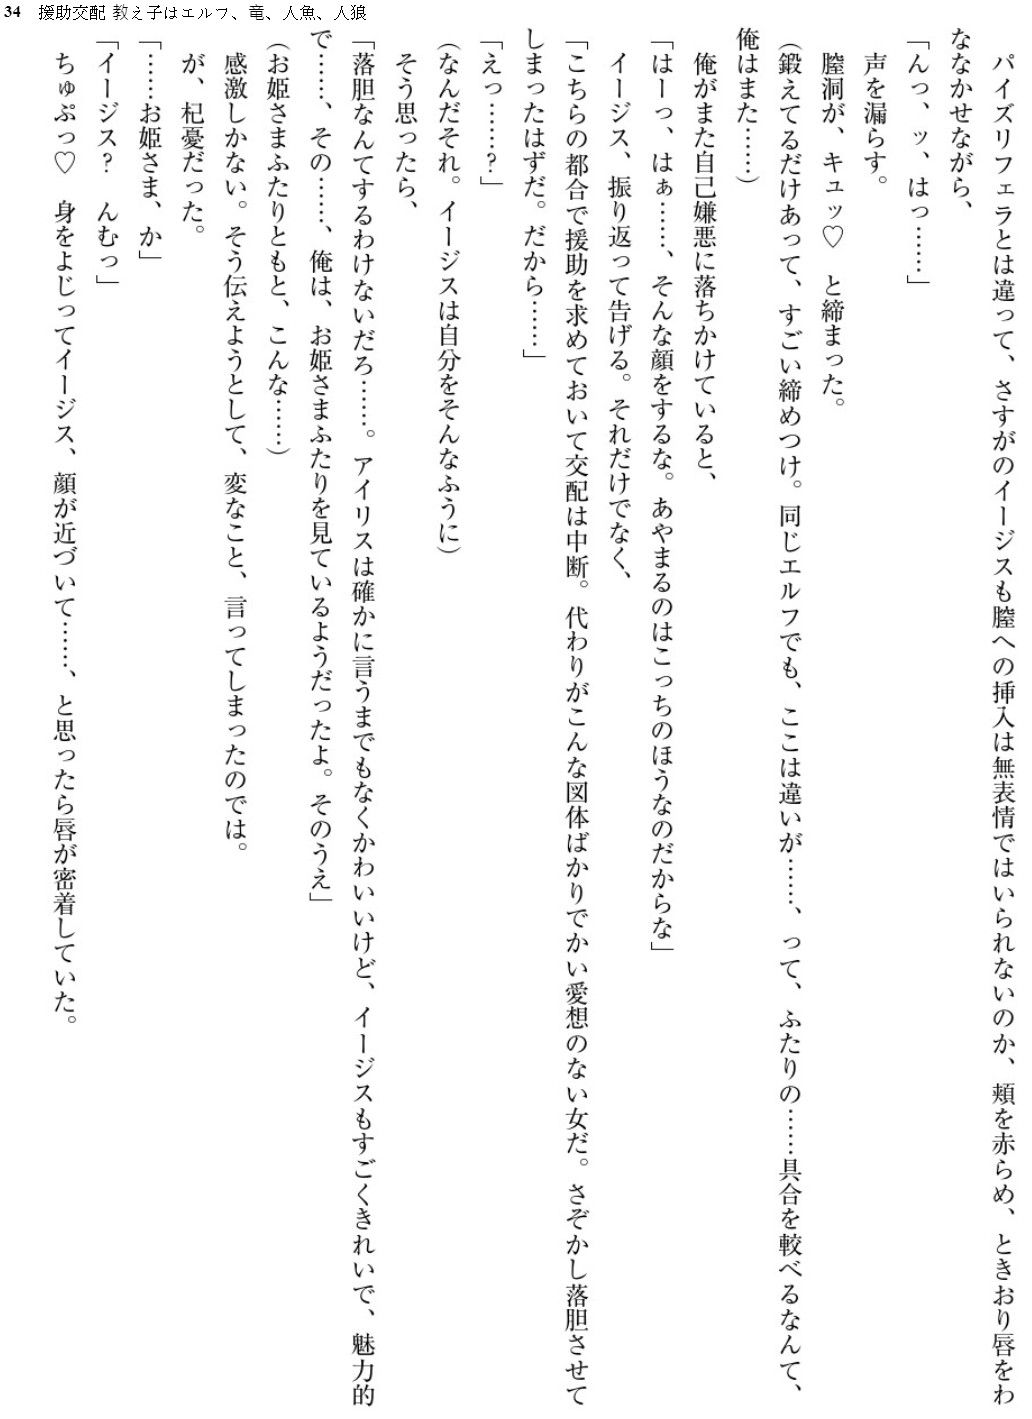 34 援助交配 教え子はエルフ、竜、人魚、人狼
パイズリフェラとは違って、さすがのイージスも膣への挿入は無表情ではいられないのか、頬を赤らめ、ときおり唇をわ
ななかせながら、
「んっ、ッ、はっ……」
声を漏らす。
膣洞が、キュッ♡　と締まった。
(鍛えてるだけあって、すごい締めつけ。同じエルフでも、ここは違いが……、って、ふたりの……具合を較べるなんて、
俺はまた……)
俺がまた自己嫌悪に落ちかけていると、
「はーっ、はぁ……、そんな顔をするな。あやまるのはこっちのほうなのだからな」
イージス、振り返って告げる。それだけでなく、
「こちらの都合で援助を求めておいて交配は中断。代わりがこんな図体ばかりでかい愛想のない女だ。さぞかし落胆させて
しまったはずだ。だから……」
「えっ……？」
(なんだそれ。イージスは自分をそんなふうに)
そう思ったら、
「落胆なんてするわけないだろ……。アイリスは確かに言うまでもなくかわいいけど、イージスもすごくきれいで、魅力的
で……、その……、俺は、お姫さまふたりを見ているようだったよ。そのうえ」
(お姫さまふたりともと、こんな……)
感激しかない。そう伝えようとして、変なこと、言ってしまったのでは。
が、杞憂だった。
「……お姫さま、か」
「イージス？　んむっ」
ちゅぷっ♡　身をよじってイージス、顔が近づいて……、と思ったら唇が密着していた。